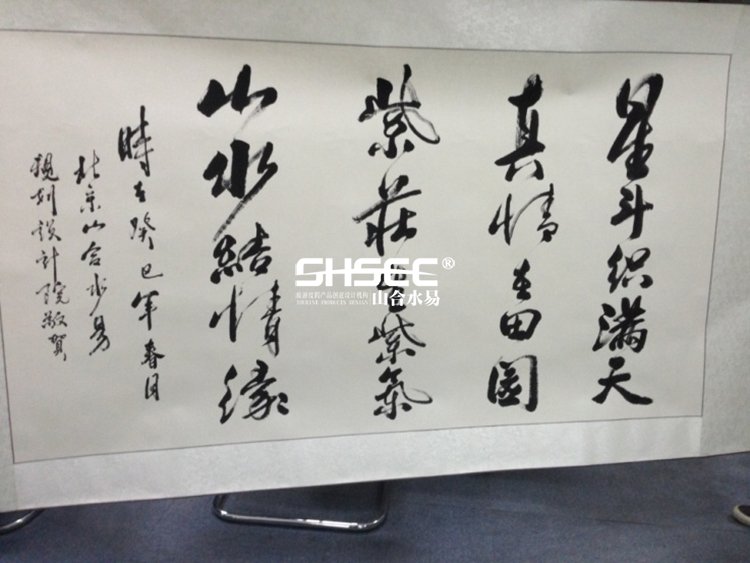 星斗织满天
真情在田园
紫莊紫氣
山水結情缘
時在癸巳年春月
北京山合水易
规划设计院敬贺
SHSEE®
山合水易